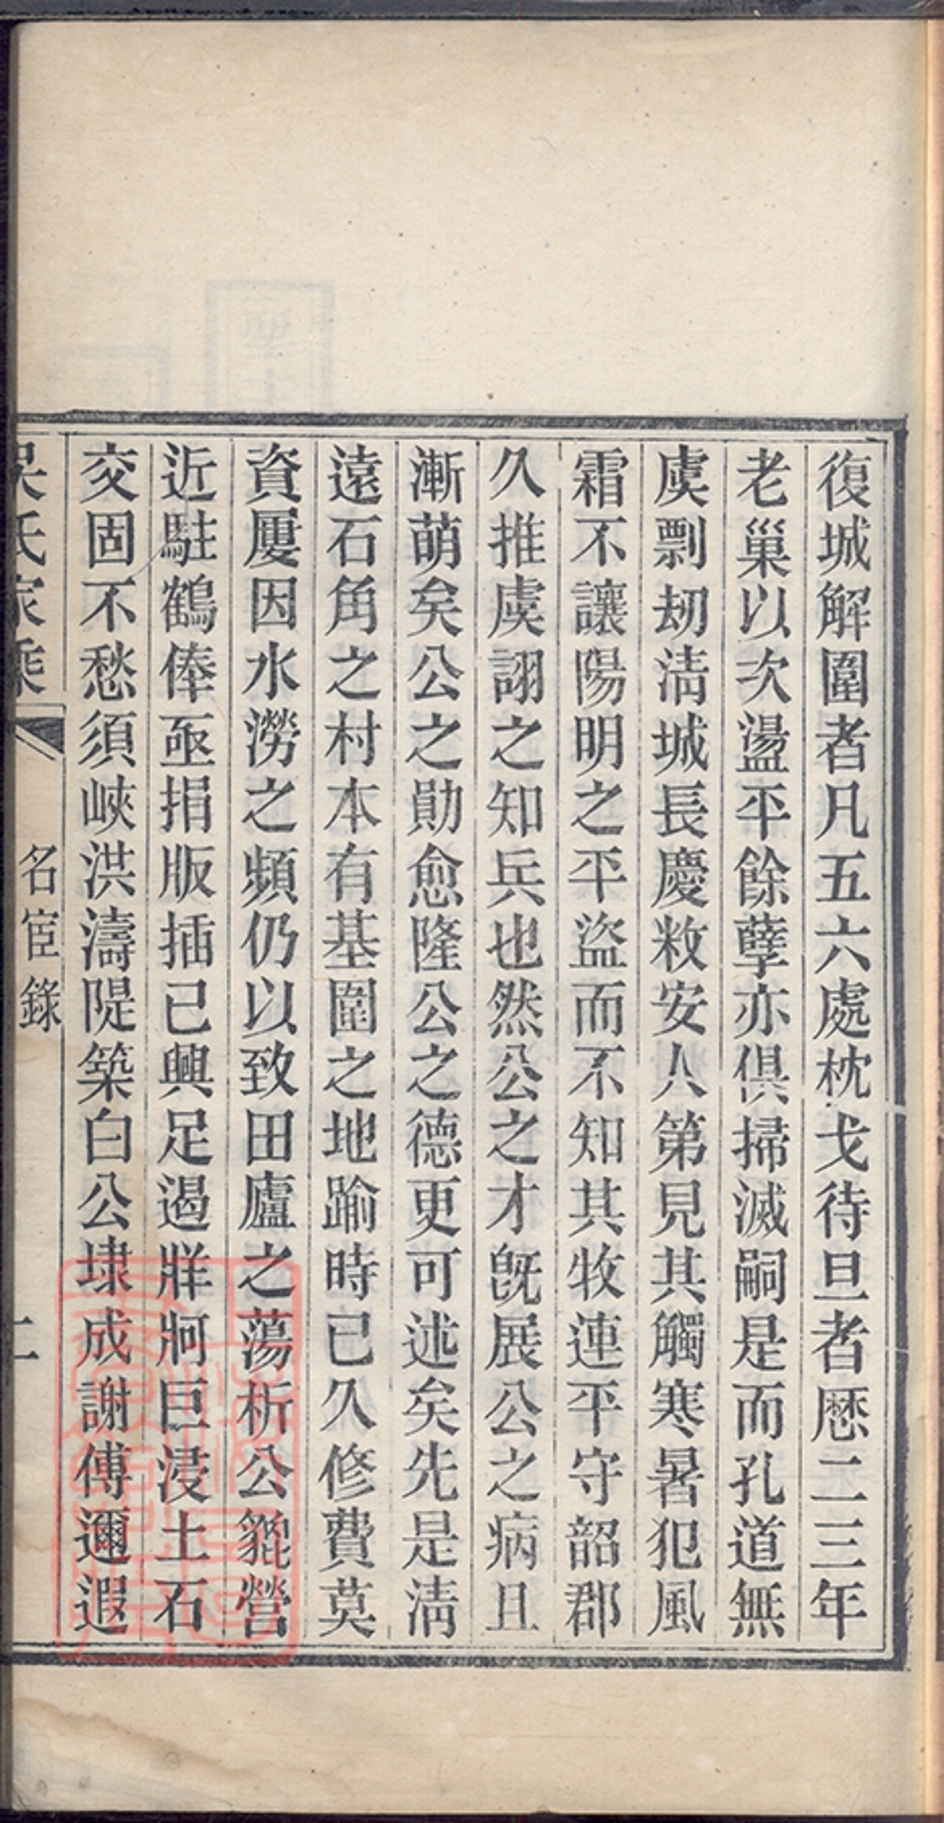 復城解圍者凡五六處枕戈待旦者歷二三年
老巢以次盪平餘孽亦俱掃滅嗣是而孔道無
虞剽刼清城長慶敉安人第見其觸寒暑犯風
霜不讓陽明之平盜而不知其牧連平守韶郡
久推虞詡之知兵也然公之才旣展公之病且
漸萌矣公之勛愈隆公之德更可述矣先是清
遠石角之村本有基圍之地踰時已久修費莫
資屢因水澇之頻仍以致田廬之蕩析公甖營
近駐鶴俸亟捐版插已興足遏牂牁巨浸土石
交固不愁須峽洪濤隄築白公埭成謝傅邇遐
吳氏家乘
名宦錄
二